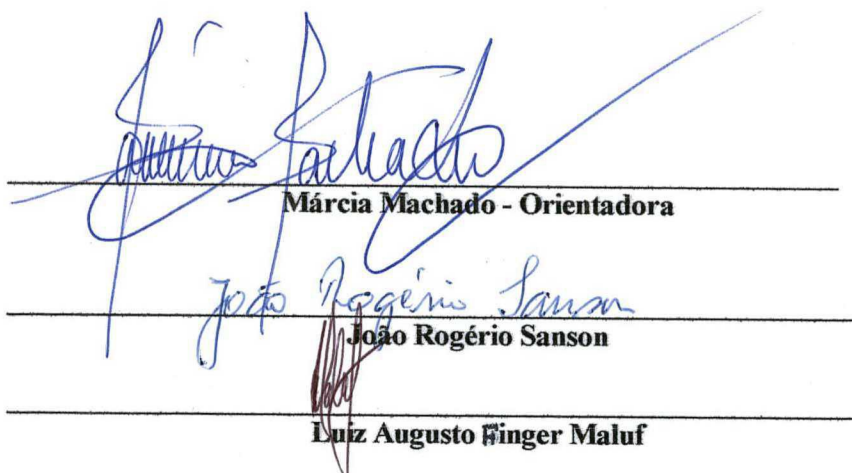 Machado
Márcia Machado - Orientadora
João Rogério Sanson
João Rogério Sanson
Luiz Augusto Finger Maluf